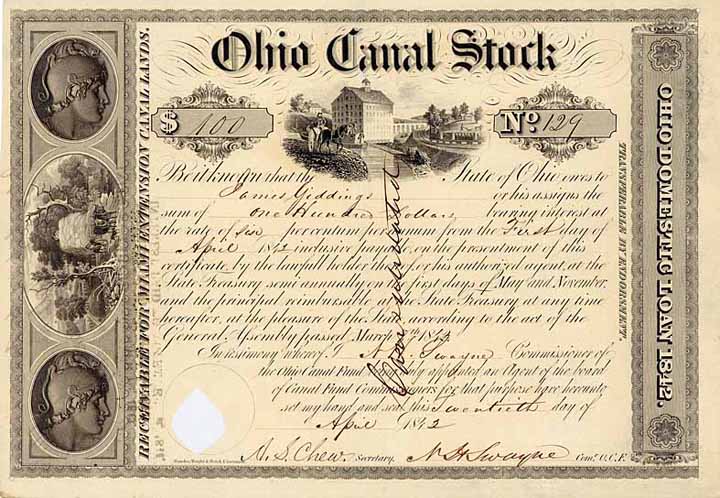 Ohio Canal Stock
$ 100
No. 129
Be it known that the State of Ohio owes to
James Giddings or his assigns the
sum of One Hundred Dollars bearing interest at
the rate of Six per centum per annum from the First day of
April 1842 inclusive payable, on the presentment of this
certificate by the lawfull holder thereof, or his authorized agent, at the
State Treasury semi annually on the first days of May and November,
and the principal reimbursable at the State Treasury at any time
hereafter, at the pleasure of the State, according to the act of the
General Assembly passed March 1842
In testimony whereof I N. H. Swayne Commissioner of
the Ohio Canal Fund duly appointed an Agent of the board
of Canal Fund Commissioners for that purpose have hereunto
set my hand and seal this Twentieth day of
April 1842
A. S. Chew. Secretary. N H Swayne Comr. O.C.F.
RECEIVABLE FOR MIAMI EXTENSION CANAL LANDS.
TRANSFERABLE BY ENDORSEMENT.
OHIO DOMESTIC LOAN 1842.